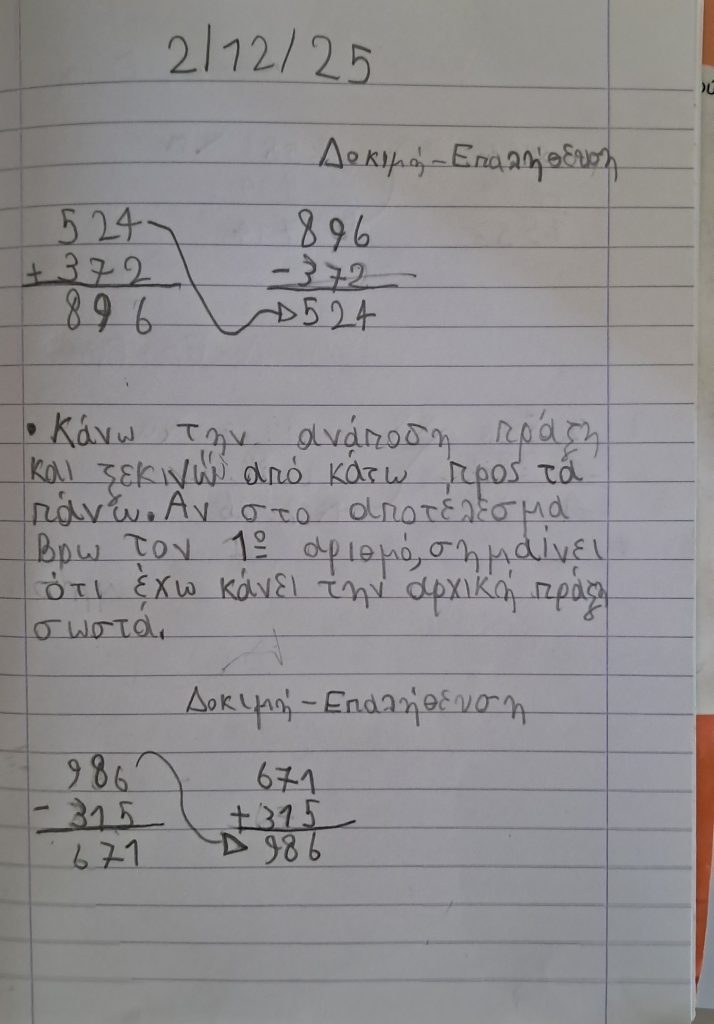 2/12/25
Δοκιμή-Επαλήθευση
524 896
+372 -372
896 524
• Κάνω την ανάποδη πράξη
και ξεκινώ από κάτω προς τα
πάνω. Αν στο αποτέλεσμα
βρω τον 1º αριθμό, σημαίνει
ότι έχω κάνει την αρχική πράξη
σωστά.
Δοκιμή-Επαλήθευση
986 671
-315 +315
671 986